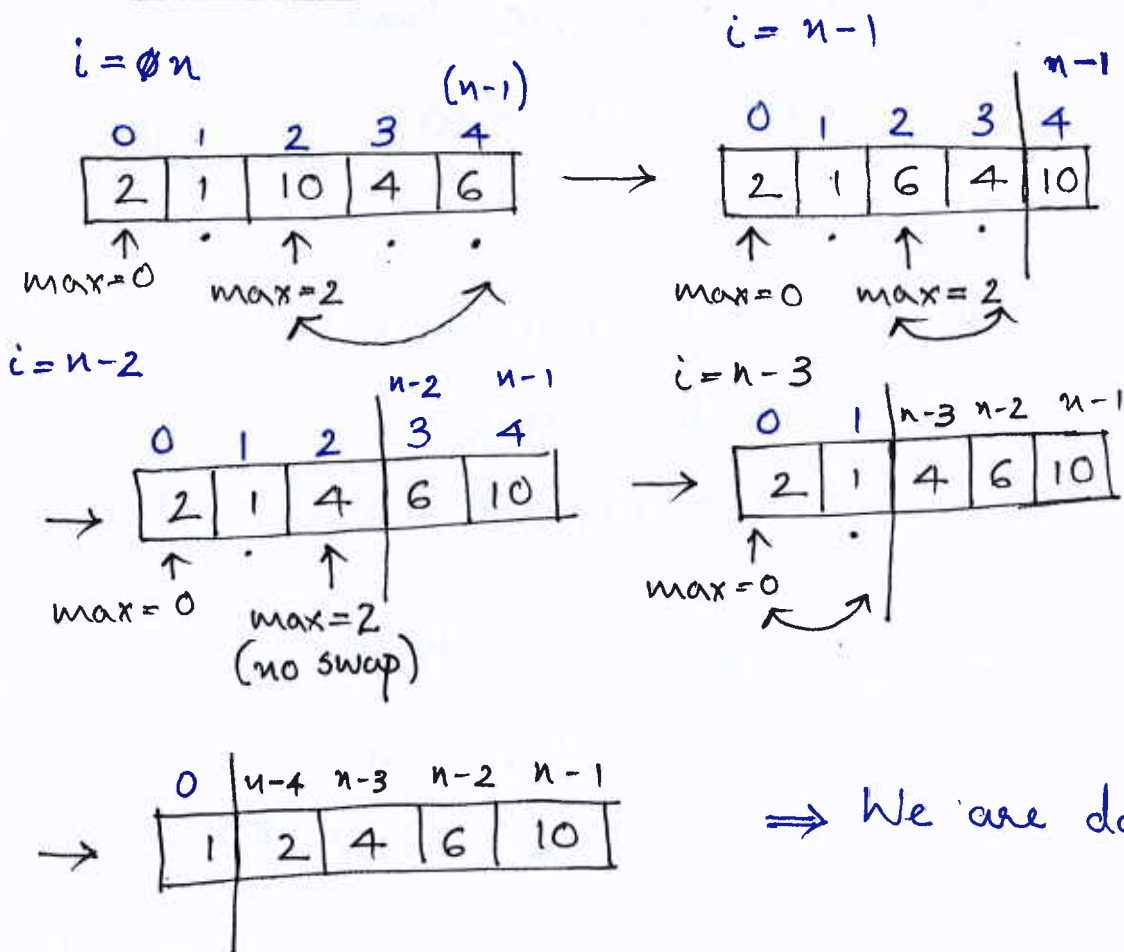 i = n
(n-1)
0 1 2 3 4
2 1 10 4 6
max=0 max=2
→
i = n-1
n-1
0 1 2 3 4
2 1 6 4 10
max=0 max=2
i = n-2
n-2 n-1
0 1 2 3 4
→ 2 1 4 6 10
max=0 max=2
(no swap)
i = n-3
0 1 n-3 n-2 n-1
→ 2 1 4 6 10
max=0
0 n-4 n-3 n-2 n-1
→ 1 2 4 6 10
⇒ We are